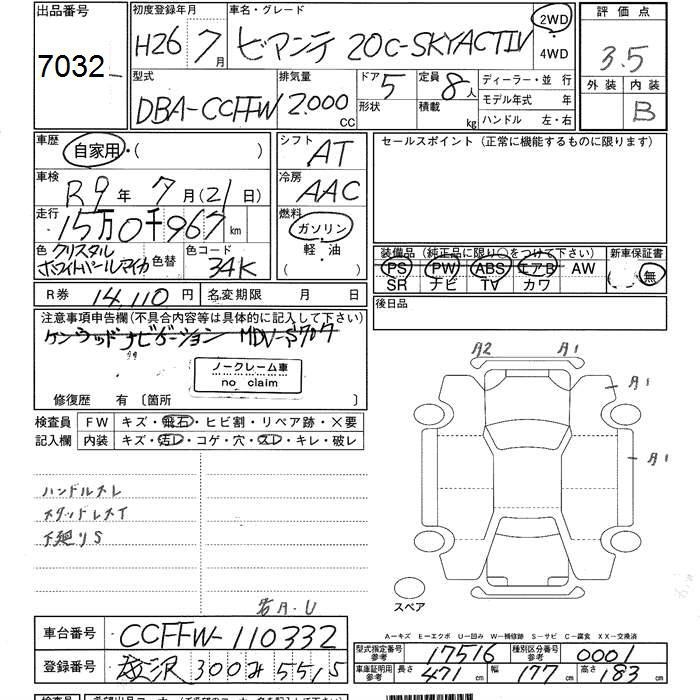 出品番号 初度登録年月 車名・グレード 2WD 評価点
7032 H26 7月 ビアンテ 20C-SKYACTIV 4WD 3.5
型式 排気量 ドア 定員 ディーラー・並行 外装 内装
DBA-CCFFW 2.000 CC 5 形状 8人 積載 kg モデル年式 年 B
ハンドル 左・右
車歴 自家用・( ) シフト AT セールスポイント(正常に機能するものに限ります)
車検 R9年 7月(21日) 冷房 AAC
走行 15万0千967km 燃料 ガソリン
軽・油
( )
色 クリスタルホワイトパールマイカ 色替 色コード 34K
装備品(純正品に限り○をつけて下さい) 新車保証書
PS PW ABS エアB AW ( ) 無
SR ナビ TV カワ
R券 14,110円 名変期限 月 日 後日品
注意事項申告欄(不具合内容等は具体的に記入して下さい)
ケンウッドナビゲーション MDV-S707
ノークレーム車
no claim
修復歴 有〔箇所 〕
A2 A1
A1
A1
検査員 FW キズ・飛石・ヒビ割・リペア跡・×要
記入欄 内装 キズ・汚レ・コゲ・穴・スレ・キレ・破レ
ハンドルスレ
スタッドレスT
下廻りS
スペア
若A.U
A-キズ E-エクボ U-凹み W-補修跡 S-サビ C-腐食 XX-交換済
車台番号 CCFFW-110332
型式指定番号 参考 17516 種別区分番号 参考 0001
登録番号 300 み 5515
車庫証明用 参考 長さ 471cm 幅 177cm 高さ 183cm